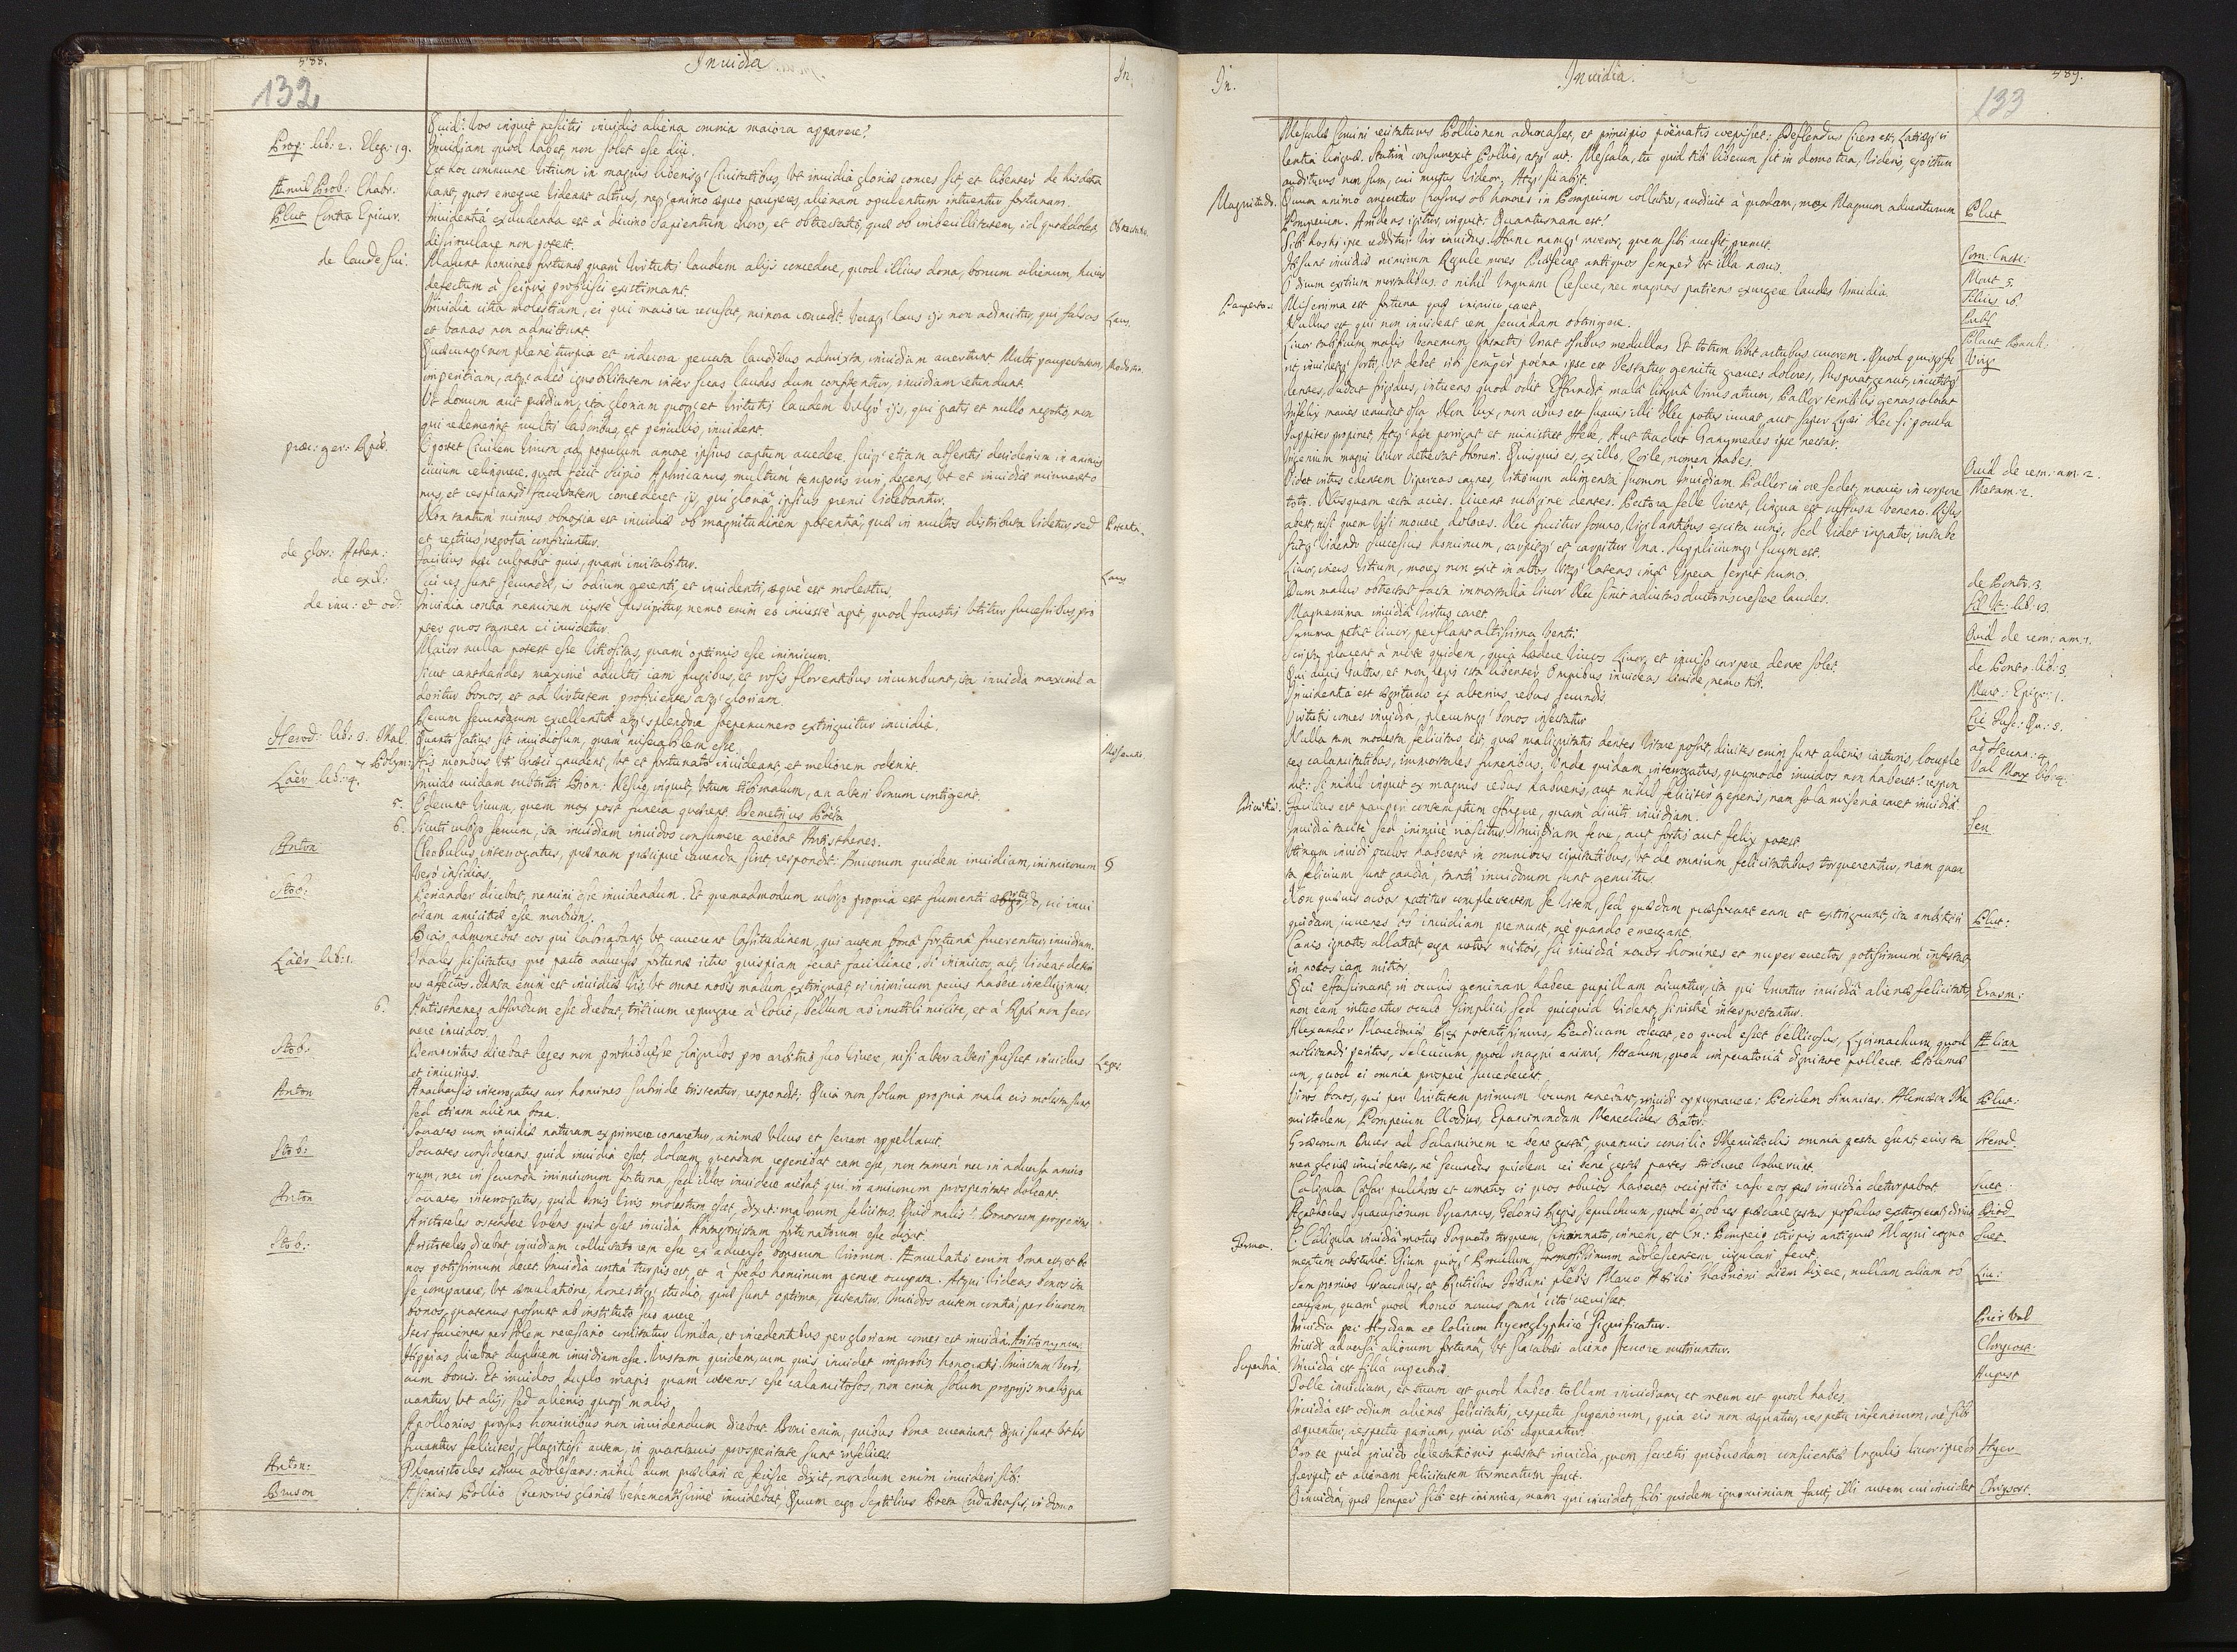 588.
132
Invidia
In.
Quid: vos inquit nescitis invidis aliena omnia maiora apparere?
Prop: lib: 2. Eleg: 19. Invidiam quod habet, non solet esse diu.
Æmil Prob: Chabr: Est hoc commune vitium in magnis liberisq; Civitatibus, vt invidia gloriæ comes sit, et libenter de his detra
hant, quos emergere videant altius, neq; animo æquo pauperes, alienam opulentium intuentur fortunam.
Plut Contra Epicur. Invidentia excludenda est à divino sapientum choro, et obtrectatio, quæ ob imbecillitatem, id quod dolet,
dissimulare non potest.
de laude sui. Malunt homines fortunæ quam virtutis laudem alijs concedere, quod illius dona, bonum alienum, huius
defectum à seipsis proficisci existimant.
Invidia citra molestiam, ei qui maiora recusat, minora concedit. veraq; laus ijs non adimitur, qui falsas Laus.
et vanas non admittunt.
Quæcunq; non plane turpia et indecora peccata laudibus admixta, invidiam avertunt Multi paupertatem, Modestia.
imperitiam, atq; adeo ignobilitatem inter suas laudes dum confitentur, invidiam retundunt.
Vt donum aut prædium, ita gloriam quoq; et virtutis laudem vulgo ijs, qui gratis et nullo negotio, non
qui redemerint multis laboribus, et periculis, invident.
præc: ger: Reip. Oportet Civilem virum ad populum amoe ipsius captum accedere, suiq; etiam absentis desiderium in animis
civium relinquere. quod fecit Scipio Aphricanus, multum temporis ruri degens, vt et invidiæ minueret o
nus, et respirandi facultatem concederet ijs, qui gloria ipsius premi videbantur.
Non tantum minus obnoxia est invidiæ ob magnitudinem potentia, quæ in multos distributa videtur, sed
et rectius negotia conficiuntur.
de glor: Athen: Facilius hæc culpabit quis, quam imitabitur.
de exil: Cui res sunt secundæ, is odium gerenti, et invidenti, æque est molestus. Laus
de inv: et od: Invidia contra neminem iuste suscipitur, nemo enim eo iniuste agit, quod faustis vtitur successibus, pro
pter quos tamen ei invidetur.
Maior nulla potest esse vitiositas, quam optimis esse inimicum.
Sicut cantharides maxime adultis iam frugibus, et rosis florentibus incumbunt, ita invidia maxime a
doritur bonos, et ad virtutem proficientes atq; gloriam.
Rerum secundarum excellentia atq; splendore sæpenumero extinguitur invidia.
Herod: lib: 3. Thal. Quanto satius sit invidiosum, quam miserabilem esse.
7 Polym: His moribus vti Græci gaudent, vt et fortunato invideant, et meliorem oderint.
Laër. lib: 4. Invido cuidam subtristi Bion: Nescio, inquit, vtrum tibi malum, an alteri bonum contigerit.
5. Oderunt vivum, quem mox post funera quærent. Demetrius Poëta
6. Sicuti rubigo ferrum, ita invidiam invidos consumere aiebat Antisthenes.
Anton Cleobulus interrogatus, quænam præcipue cavenda sint, respondit: Amicorum quidem invidiam, inimicorum
vero insidias.
Stob: Periander dicebat, nemini esse invidendum. Et quemadmodum rubigo propria est frumenti, ita invi
diam amicitiæ esse morbum.
Bias admonebat eos qui laborabant, vt caverent lassitudinem, qui autem bona fortuna fruerentur, invidiam.
Laër lib: 1. Thales sciscitatus quo pacto adversæ fortunæ ictus quispiam ferat facillime. Si inimicos, ait, videat deteri
us affectos. Tanta enim est invidiæ vis, vt omne nostrum malum extinguat, si inimicum peius habere intelligimus.
6. Antisthenes absurdum esse dicebat, triticum repurgare à lolio, bellum ab inutili milite, et à Rep: non secer
nere invidos.
Stob: Democritus dicebat leges non prohibuisse singulos pro arbitrio suo vivere, nisi alter alteri fuisset invidus Leges
et iniurius.
Anton Anacharsis interrogatus cur homines subinde tristentur, respondit: Quia non solum propria mala eis molesta sunt
sed etiam aliena bona.
Socrates cum invidiæ naturam exprimere conaretur, animæ vlcus et serram appellavit.
Stob: Socrates considerans quid invidia esset dolorem, quendam reperiebat eam esse, non tamen nec in adversa amico
rum, nec in secunda inimicorum fortuna, sed illos invidere aiebat qui in amicorum prosperitate dolerent.
Anton Socrates interrogatus, quid bonis viris molestum esset, dixit: malorum felicitas. Quid malis? Bonorum prosperitas
Aristoteles ostendere volens quid esset invidia Antagonistam fortunatorum esse dixit.
Stob: Aristoteles dicebat invidiam colluctatorem esse ex adverso, bonorum virorum. Æmulatio enim bona est, et bo
nos potissimum decet. Invidia contra turpis est, et à fœdo hominum genere occupata. Atqui videas bonos ita
se comparare, vt æmulatione, honestiq; studio, quæ sunt optima, sectentur. Invidos autem contra, per livorem
bonos, quatenus possunt ab instituto suo arcere
Iter facientes per solem necessario comitatur vmbra, et incedentibus per gloriam comes est invidia Aristonymus.
Hippias dicebat duplicem invidiam esse. Iustam quidem, cum quis invidet improbis honoratis. Iniustam vero
cum bonis. Et invidos duplo magis quam cæteros esse calamitosos, non enim solum proprijs malis gra
vantur, vt alij, sed alienis quoq; malis
Apollonius prorsus hominibus non invidendum dicebat. Boni enim, quibus bona eveniunt, digni sunt vt his
fruantur feliciter, flagitiosi autem, in quantavis prosperitate sunt infelices.
Anton: Themistocles adhuc adolescens: nihil dum præclari se fecisse dixit, nondum enim invideri sibi.
Bruson Asinius Pollio Ciceronis gloriæ vehementissime invidebat, Quum ergo Sextilius Poeta Cordubensis, in domo
In.
Invidia.
589.
133
Mesalæ Corvini recitaturus Pollionem advocasset, et principio poëmatis cepisset: Deflendus Cicero est, Latiæq; si
lentia linguæ. Statim consurrexit Pollio, atq; ait: Messala, tu quid tibi liberum sit in domo tua, videris, ego istum
auditurus non sum, cui mutus videor; Atq; sic abijt.
Magnitudo. Quum animo angeretur Crassus ob honores in Pompeium collatos, audivit à quodam, mox Magnum adventurum Plut
Pompeium. Arridens igitur, inquit: Quantusnam est?
Sibi hostis ipse redditur vir invidus.
Odium exitium mortalibus. o nihil vnquam Crescere, nec magnas patiens exurgere laudes Invidia
Paupertas: Miserrima est fortuna quæ inimico caret.
Nullus est qui non invideat rem secundam obtingere. Plaut Bacch:
Livor tabificum malis venenum, Intactis vorat ossibus medullas Et totum bibit artubus cruorem. Virg
Infelix macies renudat ossa. Non lux, non cibus est suavis illi Nec potus iuvat, aut sapor Lyæi Nec si pocula
Iuppiter propinet, Atq; hæc porrigat et ministret Hebe, Aut tradat Ganymedes ipse nectar.
Ingenium magni livor detrectat Homeri. Quisquis es, ex illo, Zoile, nomen habes. Ovid de rem: am: 2.
Videt intus edentem Vipereas carnes, vitiorum alimenta suorum Invidiam. Pallor in ore sedet, macies in corpore Metam: 2.
toto. Nusquam recta acies. livent rubigine dentes. Pectora felle virent, lingua est suffusa veneno. Risus
abest, nisi quem visi movere dolores. Nec fruitur somno, vigilantibus excita curis, Sed videt ingratos, intabe
scitq; videndo successus hominum, carpitq; et carpitur vna. Suppliciumq; suum est.
Livor, iners vitium, mores non exit in altos Vtq; latens ima vipera serpit humo. de Ponto. 3.
Dum malus obtrectat facta immortalia livor Nec sinit adiutas ductoris crescere laudes. Sil It: lib: 13.
Magnanima invidia virtus caret.
Summa petit livor, perflant altissima venti. Ovid de rem: am: 1.
Scripta placent à morte quidem, quia lædere vivos Livor, et iniusto carpere dente solet. de Ponto. lib: 3.
Qui ducis vultus, et non legis ista libenter, Omnibus invideas livide, nemo tibi. Mart: Epigr: 1.
Invidentia est ægritudo ex alterius rebus secundis Cic Tusc: Qu: 3.
Virtutis comes invidia, plerumq; bonos insectatur ad Heren: 4.
Nulla tam modesta felicitas est, quæ malignitatis dentes vitare possit, divites enim sunt alienis iacturis, locuple Val Max lib: 4.
tes calamitatibus, immortales funeribus. Vnde quidam interrogatus, quomodo invidos non haberet? respon
dit: Si nihil inquit ex magnis rebus habueris, aut nihil feliciter gesseris, nam sola miseria caret invidia.
Divitiæ. Facilius est pauperi contemptum effugere, quam diviti invidiam.
Invidia tacite sed inimice nascitur Invidiam ferre, aut fortis aut felix potest Sen
Vtinam invidi oculos haberent in omnibus civitatibus, vt de omnium felicitatibus torquerentur, nam quan
ta felicium sunt gaudia, tanti invidorum sunt gemitus
Non quævis arbos patitur complectentem se vitem, sed quædam præfocant eam et extinguunt, ita ambitiosi Plut:
quidam iuvenes ob invidiam premunt, ne quando emergant.
Canis ignotis allatrat, erga notos mitior, sic invidia novos homines et nuper evectos, potissimum infestat
in notos iam mitior.
Qui effascinant, in oculis geminam habere pupillam dicuntur, ita qui vruntur invidia alienæ felicitatis Erasm:
non eam intuentur oculo simplici, sed quicquid vident, sinistre interpretantur.
Alexander Macedonum Rex potentissimus, Perdiccam oderat, eo quod esset bellicosus, Lysimachum, quod Ælian
militandi peritus, Seleucum, quod magni animi, Attalum, quod imperatoria dignitate polleret. Ptolomæ
um, quod ei omnia prospere succederent.
Viros bonos, qui per virtutem primum locum tenebant, invidi oppugnavere: Periclem Simmias. Alcmæon The Plut:
mistoclem, Pompeium Clodius, Epaminundam Meneclides Orator.
Græcorum Duces ad Salaminem re bene gesta, quamvis consilio Themistoclis omnia gesta essent, eius ta Herod.
men gloriæ invidentes, ne secundas quidem rei bene gestæ partes tribuere voluerunt.
Caligula Cæsar pulchros et comatos si quos obvios haberet, occipitio raso eos præ invidia deturpabat Suet:
Agathocles Syracusiorum Tyrannus, Gelonis Regis sepulchrum, quod ei ob res præclare gestas populus extruxerat, diruit Diod
Forma. C. Caligula invidia motus Torquato torquem, Cincinnato, crinem, et Cn: Pompeio stirpis antiquæ Magni cogno Suet.
mentum abstulit. Esium quoq; Proculum, formosissimum adolescentem iugulari fecit.
Sempronius Gracchus, et Rutilius Tribuni plebis Marco Attilio Glabrioni diem dixere, nullam aliam ob Liv:
causam, quam quod homo novus parum cito crevisset
Invidia per Hydram et lolium hyeroglyphice significatur. Pier Val
Invidi adversa aliorum fortuna, vt Scarabei alieno stercore nutriuntur. Chrysost:
Superbia. Invidia est filia superbiæ. August
Tolle invidiam, et tuum est quod habeo. tollam invidiam, et meum est quod habes.
Invidia est odium alienæ felicitatis, respectu superiorum, quia eis non æquatur, respectu inferiorum, ne sibi
æquentur, respectu parium, quia sibi æquantur.
serpit, et alienam felicitatem tormentum facit. Hyer
O invidia, quæ semper sibi est inimica, nam qui invidet, sibi quidem ignominiam facit, illi autem cui invidet Chrysost.